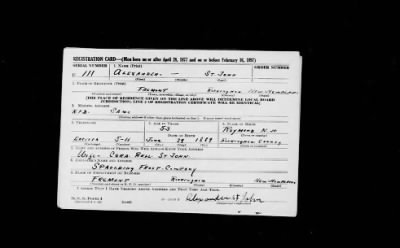 REGISTRATION CARD—(Men born on or after April 28, 1877 and on or before February 16, 1897)
SERIAL NUMBER 1. NAME (Print) ORDER NUMBER
U 111 ALEXANDER — ST. JOHN
(First) (Middle) (Last)
2. PLACE OF RESIDENCE (Print)
FREMONT ROCKINGHAM NEW HAMPSHIRE
[THE PLACE OF RESIDENCE GIVEN ON THE LINE ABOVE WILL DETERMINE LOCAL BOARD
JURISDICTION; LINE 2 OF REGISTRATION CERTIFICATE WILL BE IDENTICAL]
3. MAILING ADDRESS
R.F.D. SAME
4. TELEPHONE 5. AGE IN YEARS 6. PLACE OF BIRTH
53 RAYMOND N.H
DATE OF BIRTH
5-11 JUNE 1889 ROCKINGHAM COUNTY
7. NAME AND ADDRESS OF PERSON WHO WILL ALWAYS KNOW YOUR ADDRESS
WIFE CORA HALL ST JOHN
8. EMPLOYER'S NAME AND ADDRESS
SPAULDING FROST COMPANY
9. PLACE OF EMPLOYMENT OR BUSINESS
FREMONT ROCKINGHAM NEW HAMPSHIRE
I AFFIRM THAT I HAVE VERIFIED ABOVE ANSWERS AND THAT THEY ARE TRUE.
Alexander St John